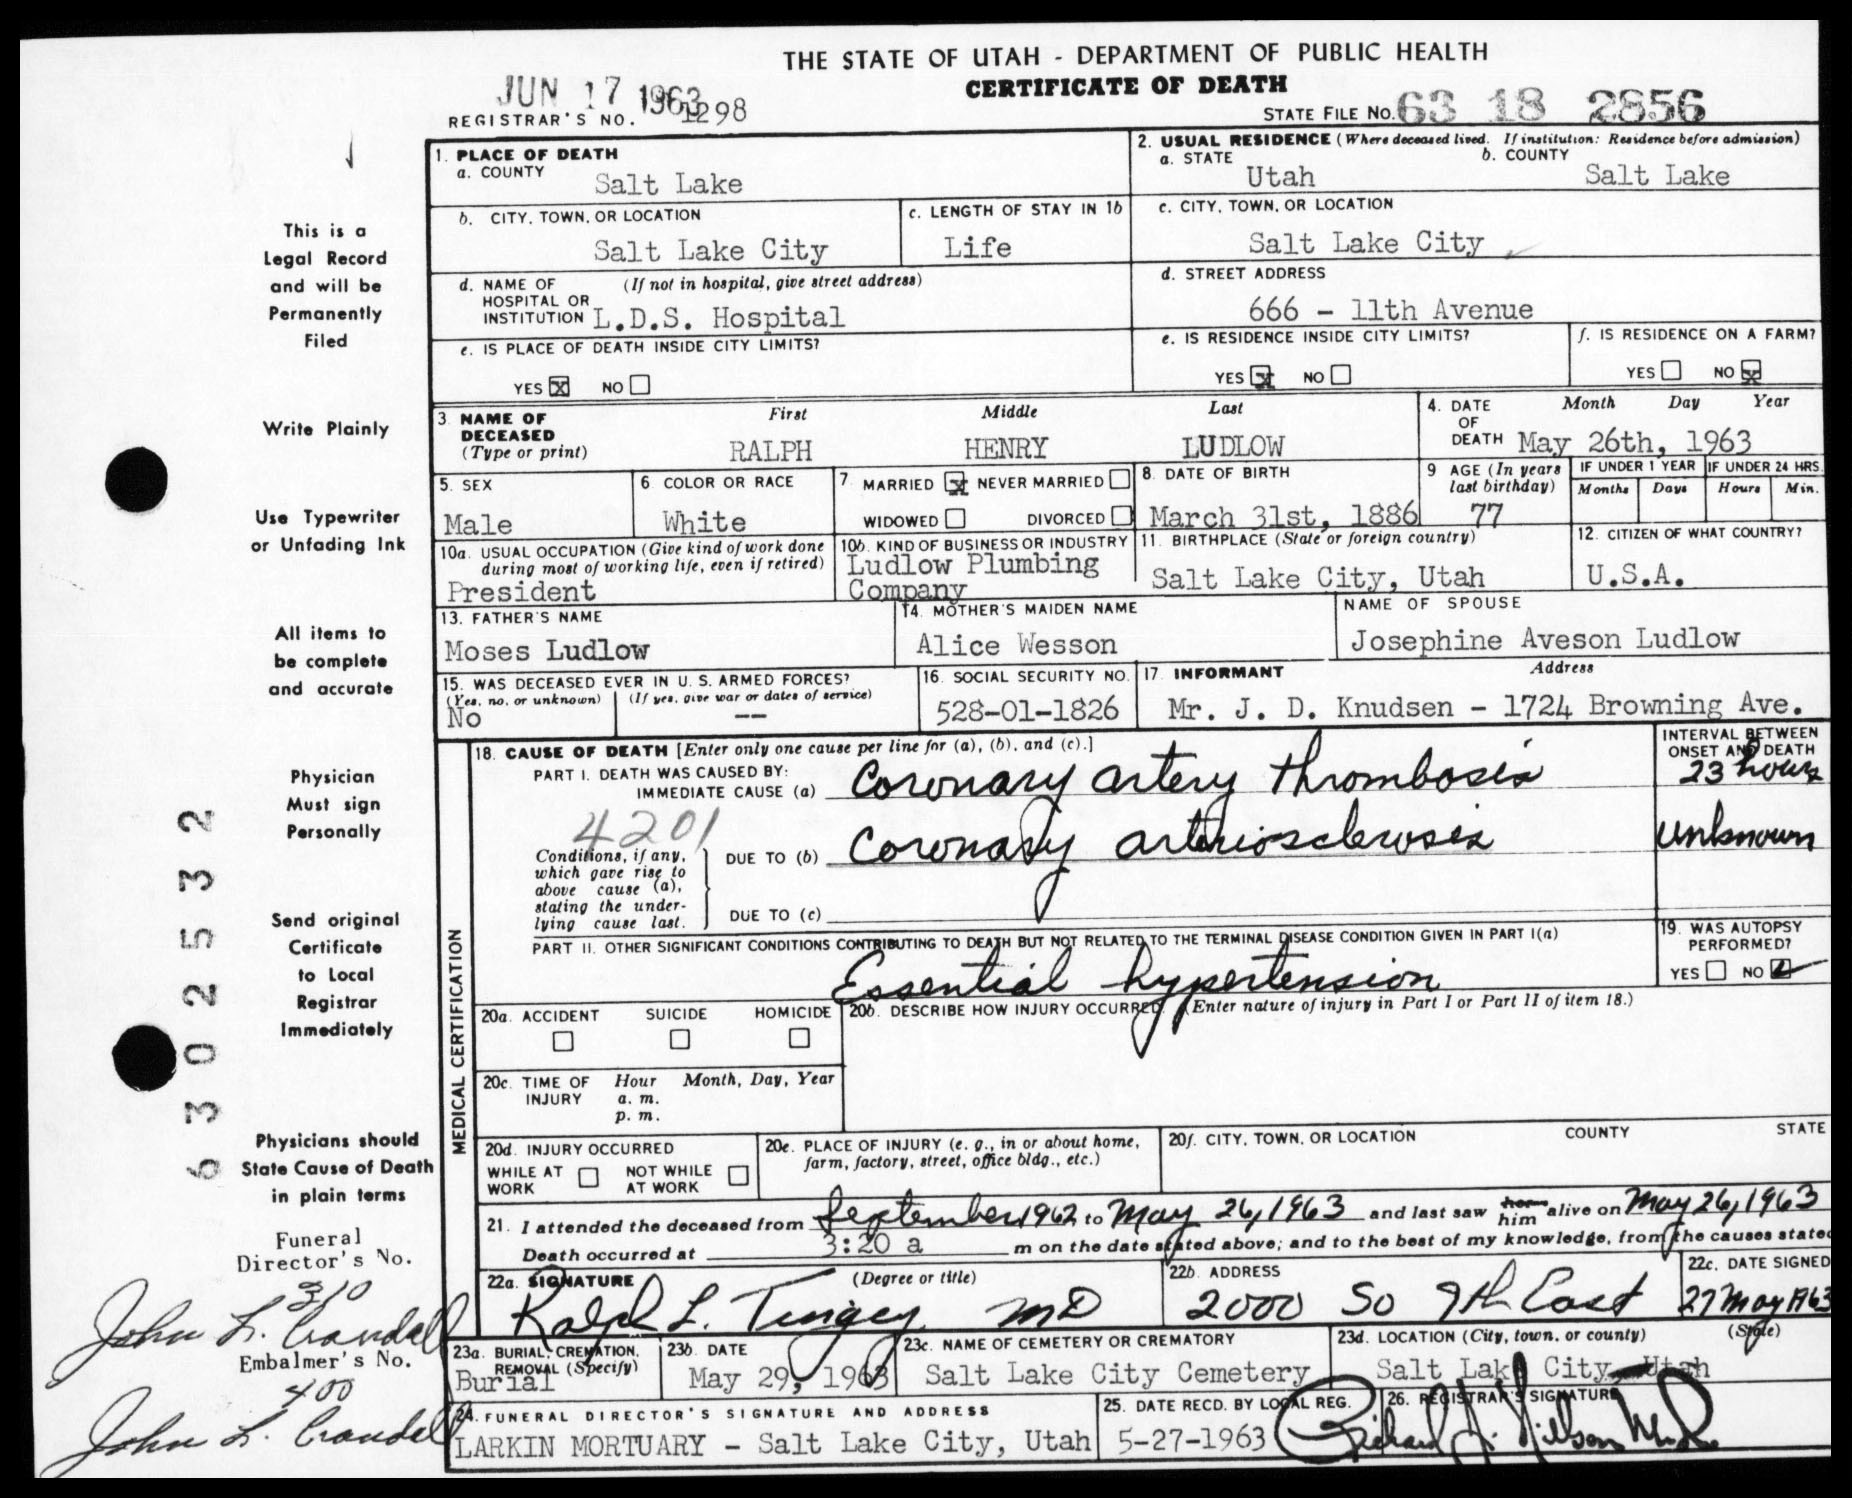 THE STATE OF UTAH - DEPARTMENT OF PUBLIC HEALTH
CERTIFICATE OF DEATH
JUN 17 1963
REGISTRAR'S NO. 1298
STATE FILE NO. 63 18 2856
1. PLACE OF DEATH
a. COUNTY Salt Lake
2. USUAL RESIDENCE (Where deceased lived. If institution: Residence before admission)
a. STATE Utah b. COUNTY Salt Lake
b. CITY, TOWN, OR LOCATION Salt Lake City
c. LENGTH OF STAY IN 1b Life
c. CITY, TOWN, OR LOCATION Salt Lake City
d. NAME OF HOSPITAL OR INSTITUTION (If not in hospital, give street address) L.D.S. Hospital
d. STREET ADDRESS 666 - 11th Avenue
e. IS PLACE OF DEATH INSIDE CITY LIMITS?
YES X NO
e. IS RESIDENCE INSIDE CITY LIMITS?
YES X NO
f. IS RESIDENCE ON A FARM?
YES NO X
3. NAME OF DECEASED (Type or print) First Middle Last
RALPH HENRY LUDLOW
4. DATE OF DEATH Month Day Year
May 26th, 1963
5. SEX Male
6. COLOR OR RACE White
7. MARRIED X NEVER MARRIED
WIDOWED DIVORCED
8. DATE OF BIRTH March 31st, 1886
9 AGE (In years last birthday) 77
IF UNDER 1 YEAR Months Days
IF UNDER 24 HRS. Hours Min.
10a. USUAL OCCUPATION (Give kind of work done during most of working life, even if retired)
President
10b. KIND OF BUSINESS OR INDUSTRY
Ludlow Plumbing Company
11. BIRTHPLACE (State or foreign country)
Salt Lake City, Utah
12. CITIZEN OF WHAT COUNTRY?
U.S.A.
13. FATHER'S NAME
Moses Ludlow
14. MOTHER'S MAIDEN NAME
Alice Wesson
NAME OF SPOUSE
Josephine Aveson Ludlow
15. WAS DECEASED EVER IN U.S. ARMED FORCES?
(Yes, no, or unknown) (If yes, give war or dates of service)
No --
16. SOCIAL SECURITY NO.
528-01-1826
17. INFORMANT Address
Mr. J. D. Knudsen - 1724 Browning Ave.
MEDICAL CERTIFICATION
18. CAUSE OF DEATH [Enter only one cause per line for (a), (b), and (c).]
INTERVAL BETWEEN ONSET AND DEATH
PART I. DEATH WAS CAUSED BY:
IMMEDIATE CAUSE (a) Coronary artery thrombosis 23 hours
4201
Conditions, if any, which gave rise to above cause (a), stating the underlying cause last.
DUE TO (b) Coronary arteriosclerosis unknown
DUE TO (c)
PART II. OTHER SIGNIFICANT CONDITIONS CONTRIBUTING TO DEATH BUT NOT RELATED TO THE TERMINAL DISEASE CONDITION GIVEN IN PART I(a)
Essential hypertension
19. WAS AUTOPSY PERFORMED?
YES NO
20a. ACCIDENT SUICIDE HOMICIDE
20b. DESCRIBE HOW INJURY OCCURRED. (Enter nature of injury in Part I or Part II of item 18.)
20c. TIME OF INJURY Hour Month, Day, Year
a. m.
p. m.
20d. INJURY OCCURRED
WHILE AT WORK NOT WHILE AT WORK
20e. PLACE OF INJURY (e. g., in or about home, farm, factory, street, office bldg., etc.)
20f. CITY, TOWN, OR LOCATION COUNTY STATE
21. I attended the deceased from September 1962 to May 26, 1963 and last saw her him alive on May 26, 1963
Death occurred at 3:20 a m on the date stated above; and to the best of my knowledge, from the causes stated
22a. SIGNATURE (Degree or title)
Ralph L. Tingey MD
22b. ADDRESS
2000 So 9th East
22c. DATE SIGNED
27 May 1963
23a. BURIAL, CREMATION, REMOVAL (Specify)
Burial
23b. DATE
May 29, 1963
23c. NAME OF CEMETERY OR CREMATORY
Salt Lake City Cemetery
23d. LOCATION (City, town, or county) (State)
Salt Lake City, Utah
24. FUNERAL DIRECTOR'S SIGNATURE AND ADDRESS
LARKIN MORTUARY - Salt Lake City, Utah
25. DATE RECD. BY LOCAL REG.
5-27-1963
26. REGISTRAR'S SIGNATURE
Richard J. Nilson M.D.
This is a
Legal Record
and will be
Permanently
Filed
Write Plainly
Use Typewriter
or Unfading Ink
All items to
be complete
and accurate
Physician
Must sign
Personally
Send original
Certificate
to Local
Registrar
Immediately
Physicians should
State Cause of Death
in plain terms
Funeral
Director's No.
310
John L. Crandall
Embalmer's No.
400
John L. Crandall
6302532